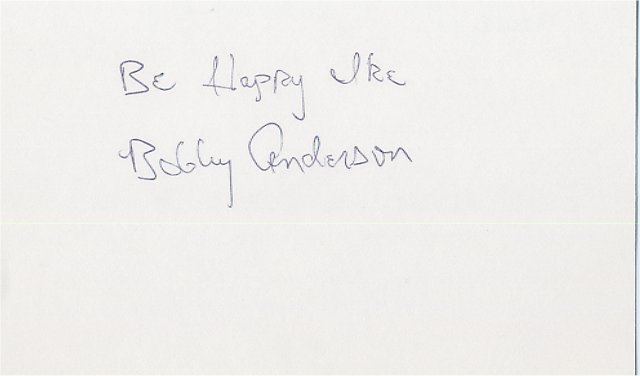 Be Happy Ike
Bobby Anderson